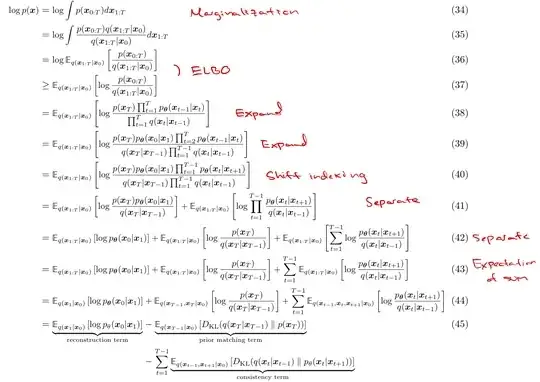 log p(x) = log ∫ p(x_{0:T}) dx_{1:T} (34) Marginalization
= log ∫ \frac{p(x_{0:T}) q(x_{1:T}|x_0)}{q(x_{1:T}|x_0)} dx_{1:T} (35)
= log 𝔼_{q(x_{1:T}|x_0)} [ \frac{p(x_{0:T})}{q(x_{1:T}|x_0)} ] (36)
) ELBO
≥ 𝔼_{q(x_{1:T}|x_0)} [ log \frac{p(x_{0:T})}{q(x_{1:T}|x_0)} ] (37)
= 𝔼_{q(x_{1:T}|x_0)} [ log \frac{p(x_T) ∏_{t=1}^{T} p_θ(x_{t-1}|x_t)}{∏_{t=1}^{T} q(x_t|x_{t-1})} ] Expand (38)
= 𝔼_{q(x_{1:T}|x_0)} [ log \frac{p(x_T) p_θ(x_0|x_1) ∏_{t=2}^{T} p_θ(x_{t-1}|x_t)}{q(x_T|x_{T-1}) ∏_{t=1}^{T-1} q(x_t|x_{t-1})} ] Expand (39)
= 𝔼_{q(x_{1:T}|x_0)} [ log \frac{p(x_T) p_θ(x_0|x_1) ∏_{t=1}^{T-1} p_θ(x_t|x_{t+1})}{q(x_T|x_{T-1}) ∏_{t=1}^{T-1} q(x_t|x_{t-1})} ] Shift indexing (40)
= 𝔼_{q(x_{1:T}|x_0)} [ log \frac{p(x_T) p_θ(x_0|x_1)}{q(x_T|x_{T-1})} ] + 𝔼_{q(x_{1:T}|x_0)} [ log ∏_{t=1}^{T-1} \frac{p_θ(x_t|x_{t+1})}{q(x_t|x_{t-1})} ] Separate (41)
= 𝔼_{q(x_{1:T}|x_0)} [log p_θ(x_0|x_1)] + 𝔼_{q(x_{1:T}|x_0)} [ log \frac{p(x_T)}{q(x_T|x_{T-1})} ] + 𝔼_{q(x_{1:T}|x_0)} [ ∑_{t=1}^{T-1} log \frac{p_θ(x_t|x_{t+1})}{q(x_t|x_{t-1})} ] (42) Separate
= 𝔼_{q(x_{1:T}|x_0)} [log p_θ(x_0|x_1)] + 𝔼_{q(x_{1:T}|x_0)} [ log \frac{p(x_T)}{q(x_T|x_{T-1})} ] + ∑_{t=1}^{T-1} 𝔼_{q(x_{1:T}|x_0)} [ log \frac{p_θ(x_t|x_{t+1})}{q(x_t|x_{t-1})} ] (43) Expectation
of sum
= 𝔼_{q(x_1|x_0)} [log p_θ(x_0|x_1)] + 𝔼_{q(x_{T-1},x_T|x_0)} [ log \frac{p(x_T)}{q(x_T|x_{T-1})} ] + ∑_{t=1}^{T-1} 𝔼_{q(x_{t-1},x_t,x_{t+1}|x_0)} [ log \frac{p_θ(x_t|x_{t+1})}{q(x_t|x_{t-1})} ] (44)
= 𝔼_{q(x_1|x_0)} [log p_θ(x_0|x_1)] − 𝔼_{q(x_{T-1}|x_0)} [D_{KL}(q(x_T|x_{T-1}) ∥ p(x_T))] (45)
reconstruction term prior matching term
− ∑_{t=1}^{T-1} 𝔼_{q(x_{t-1},x_{t+1}|x_0)} [D_{KL}(q(x_t|x_{t-1}) ∥ p_θ(x_t|x_{t+1}))]
consistency term